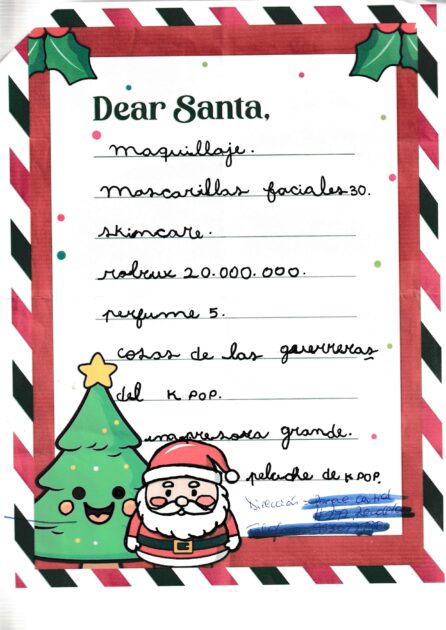 Dear Santa,
maquillaje.
mascarillas faciales 30.
skincare.
robux 20.000.000.
perfume 5.
cosas de las guerreras
del K POP.
impresora grande.
peluche de K POP.
Dirección